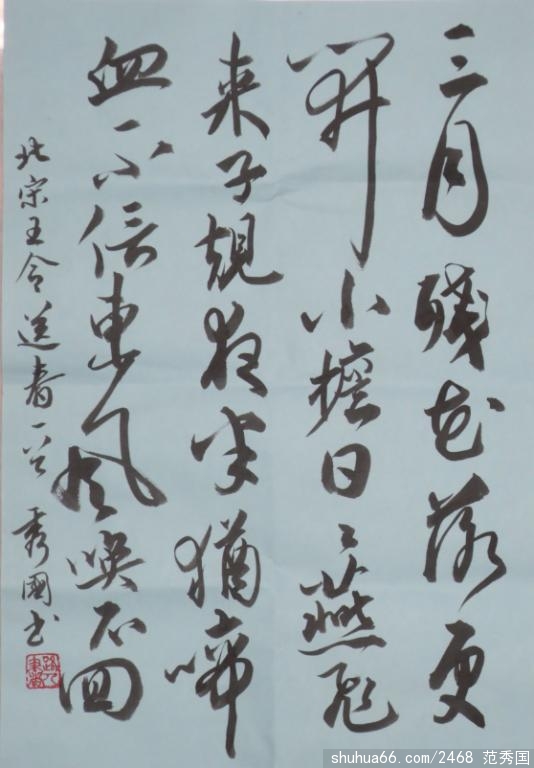 三月殘花落更
開小檐日々燕飛
来子規夜半猶啼
血不信東風喚不回
北宋王令送春一首 秀國书
shuhua66.com/2468 范秀国